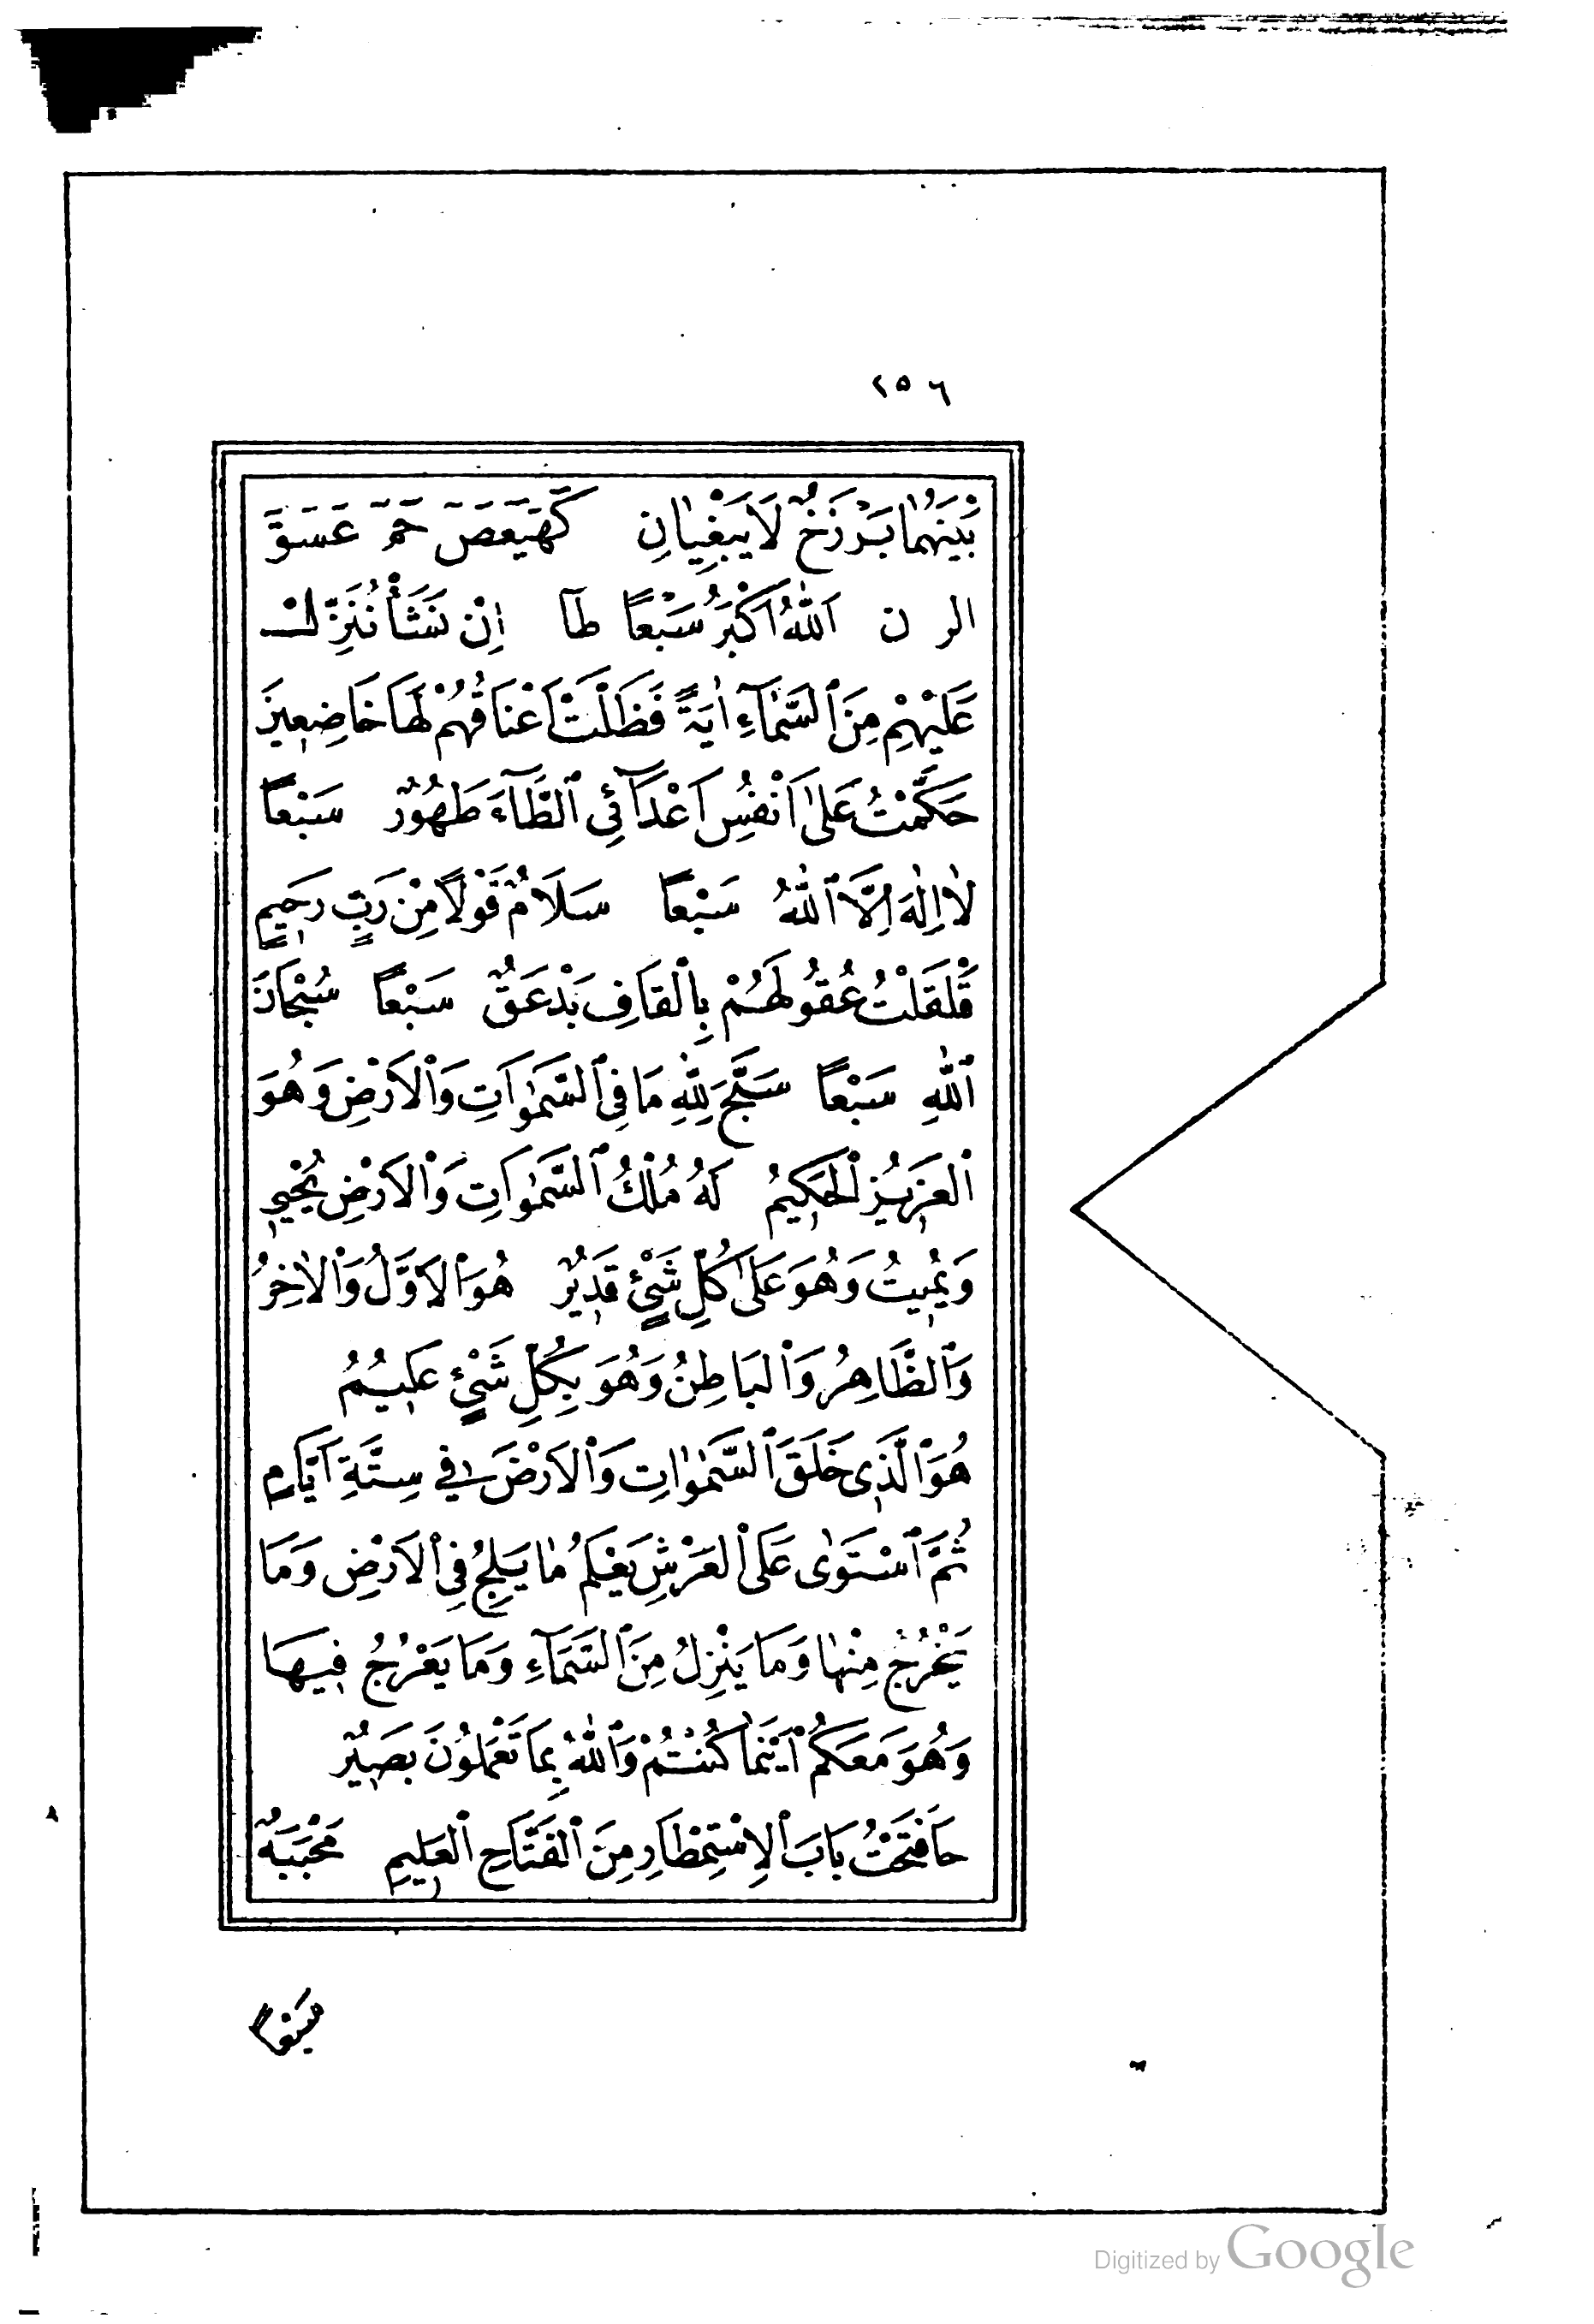 ٢٥٦
بَيْنَهُمَا بَرْزَخٌ لَا يَبْغِيَانِ كٓهٰيٰعٓصٓ حٰمٓ عٓسٓقٓ
الر ن اَللّٰهُ اَكْبَرُ سَبْعًا طآ اِنْ نَشَأْ نُنَزِّلْ
عَلَيْهِمْ مِنَ ٱلسَّمَآءِ اٰيَةً فَظَلَّتْ اَعْنَاقُهُمْ لَهَا خَاضِعِينَ
حَكَّمْتُ عَلٰى اَنْفُسِ اَعْدَآئِى ٱلطَّآءَ طَهُورٌ سَبْعًا
لَا اِلٰهَ اِلَّا ٱللّٰهُ سَبْعًا سَلَامٌ قَوْلًا مِنْ رَبٍّ رَحِيمٍ
قَلْقَلْتُ عُقُولَهُمْ بِالْقَافِ بَدْعَقٌ سَبْعًا سُبْحَانَ
ٱللّٰهِ سَبْعًا سَبَّحَ لِلّٰهِ مَا فِى ٱلسَّمٰوَاتِ وَٱلْاَرْضِ وَهُوَ
ٱلْعَزِيزُ ٱلْحَكِيمُ لَهُ مُلْكُ ٱلسَّمٰوَاتِ وَٱلْاَرْضِ يُحْيِى
وَيُمِيتُ وَهُوَ عَلٰى كُلِّ شَيْءٍ قَدِيرٌ هُوَ ٱلْاَوَّلُ وَٱلْاٰخِرُ
وَٱلظَّاهِرُ وَٱلْبَاطِنُ وَهُوَ بِكُلِّ شَيْءٍ عَلِيمٌ
هُوَ ٱلَّذِى خَلَقَ ٱلسَّمٰوَاتِ وَٱلْاَرْضَ فِى سِتَّةِ اَيَّامٍ
ثُمَّ ٱسْتَوٰى عَلَى ٱلْعَرْشِ يَعْلَمُ مَا يَلِجُ فِى ٱلْاَرْضِ وَمَا
يَخْرُجُ مِنْهَا وَمَا يَنْزِلُ مِنَ ٱلسَّمَآءِ وَمَا يَعْرُجُ فِيهَا
وَهُوَ مَعَكُمْ اَيْنَمَا كُنْتُمْ وَٱللّٰهُ بِمَا تَعْمَلُونَ بَصِيرٌ
حَا فَتَحْتُ بَابَ ٱلْاِسْتِمْطَارِ مِنَ ٱلْفَتَّاحِ ٱلْعَلِيمِ مَحْبَبَهٌ
سَبْعًا
Digitized by Google